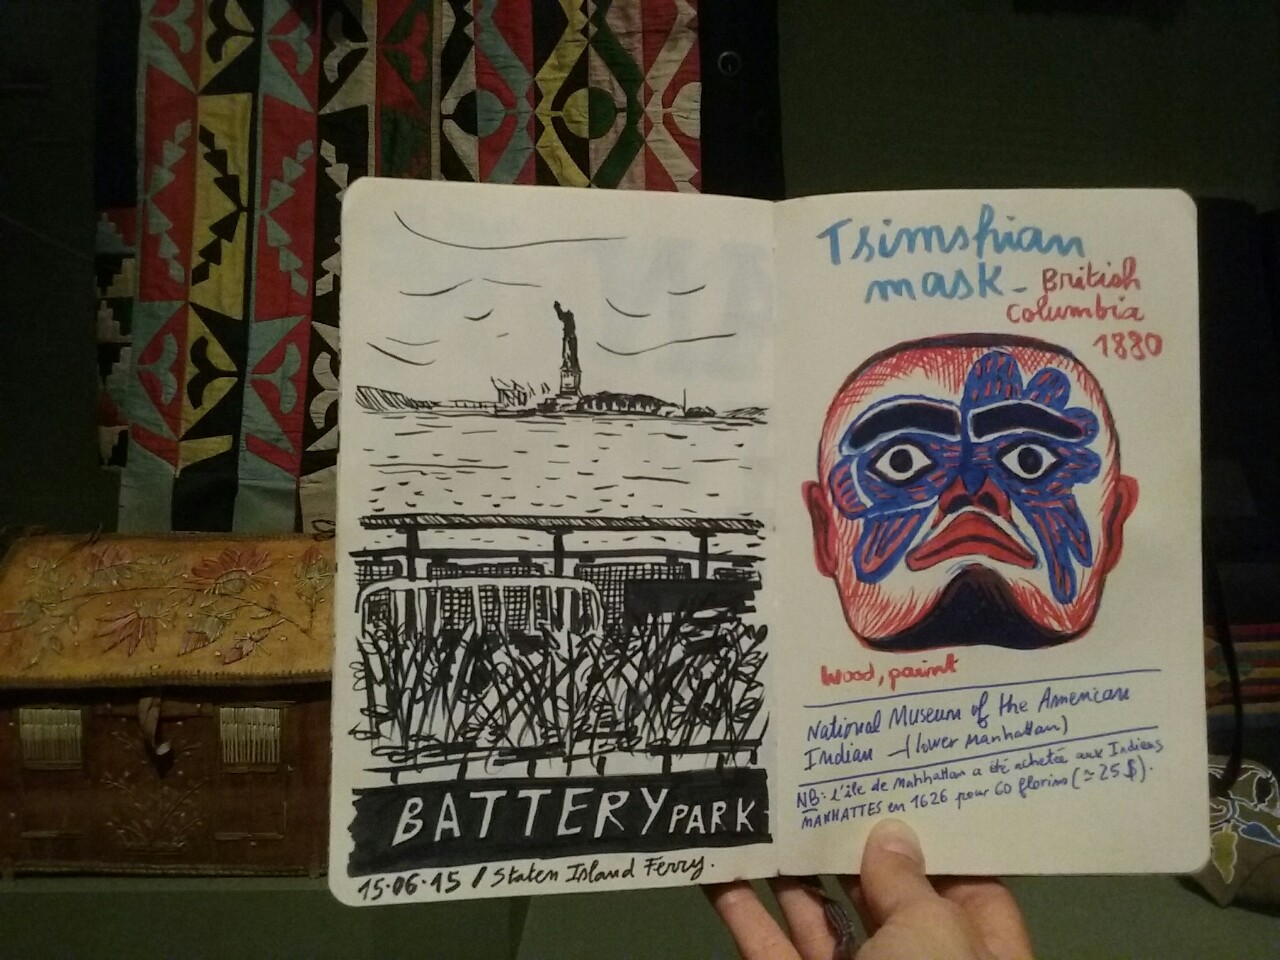 BATTERY PARK
15.06.15 / Staten Island Ferry.
Tsimshian
mask - British
Columbia
1880
Wood, paint
National Museum of the American
Indian - (lower Manhattan)
NB: l'île de Manhattan a été achetée aux Indiens
MANHATTES en 1626 pour 60 florins (≈ 25 $).